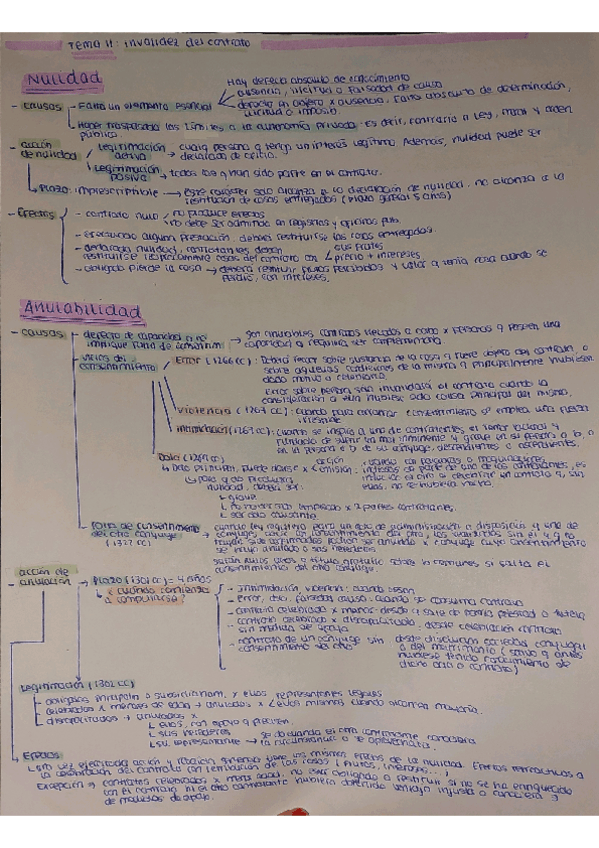 Tema 11: Invalidez del contrato
Nulidad
Hay defecto absoluto de conocimiento
- causas - Falta un elemento esencial ausencia, ilicitud o falsedad de causa
defecto en objeto x ausencia, falta absoluta de determinación,
ilicitud o imposib.
- Haber traspasado los límites a la autonomía privada. Es decir, contrario a Ley, moral y orden
público.
- acción de nulidad
Legitimación activa → cualq persona q tenga un interés legítimo. Además, nulidad puede ser
declarada de oficio.
Legitimación pasiva → todos los q han sido parte en el contrato.
Plazo: imprescriptible → este carácter solo alcanza a la declaración de nulidad, no alcanza a la
restitución de cosas entregadas (plazo general 5 años)
- Efectos
- contrato nulo no produce efectos
no debe ser admitido en registros y oficinas pub.
- ejecutando alguna prestación, deberá restituirse las cosas entregadas.
- declarada nulidad, contratantes deben
restituirse recíprocamente cosas del contrato con sus frutos
precio + intereses
- obligado pierde la cosa → deberá restituir frutos percibidos y valor q tenía cosa cuando se
perdió, con intereses.
Anulabilidad
- causas - defecto de capacidad q no
implique falta de consentim → Son anulables contratos llevados a cabo x personas q poseen una
capacidad q requiera ser complementada
- vicios del
consentimiento
Error (1266 CC): Deberá recaer sobre sustancia de la cosa q fuere objeto del contrato, o
sobre aquellas condiciones de la misma q principalmente hubiesen
dado motivo a celebrarlo.
Error sobre persona solo invalidará el contrato cuando la
consideración a ella hubiese sido causa principal del mismo.
violencia (1267 CC): cuando para arrancar consentimiento se emplea una fuerza
irresistible
intimidación (1267 CC): cuando se inspira a uno de contratantes el temor racional y
fundado de sufrir un mal inminente y grave en su persona o b, o
en la persona o b de su cónyuge, descendientes o ascendientes.
Dolo (1269 CC)
acción
omisión
Para q dolo produzca
nulidad, deberá ser:
Grave
No haber sido empleado x 2 partes contratantes.
Ser dolo causante
- Falta de consentimiento
del otro cónyuge
(1322 CC)
cuando ley requiera para un acto de administración o disposición q uno de
cónyuges actúe con consentimiento del otro, los realizados sin él y q no
hayan sido confirmados podrán ser anulados x cónyuge cuyo consentimiento
se haya omitido o sus herederos
serán nulos actos a título gratuito sobre b comunes si falta el
consentimiento del otro cónyuge.
- acción de
anulación
Plazo (1301 CC) = 4 años
¿cuándo comienza
a computarse?
- Intimidación, violencia: cuando cesen
- error, dolo, falsedad causa: cuando se consuma contrato
- contrato celebrado x menores: desde q salgan de patria potestad o tutela
- contrato celebrado x discapacitado: desde celebración contrato
sin medidas de apoyo
- contrato de un cónyuge sin
consentimiento del otro
desde disolución sociedad conyugal
o del matrimonio (salvo q antes
hubiese tenido conocimiento de
dicho acto o contrato)
Legitimación (1302 CC)
- obligados principal o subsidiariam. x ellos representantes legales
- celebrados x menores de edad → anulados x ellos mismos cuando alcancen mayoría.
- discapacitados → anulados x
ellos, con apoyo q precisen
sus herederos
su representante → Se da cuando el otro contratante conociera
la circunstancia o se aprovechara.
Efectos
Una vez ejercitada acción y
la celebración del contrato con restitución de las cosas (frutos, intereses, ...)
Excepción q contratos celebrados x menor edad, no están obligados a restituir si no se ha enriquecido
con el contrato
de medidas de apoyo.